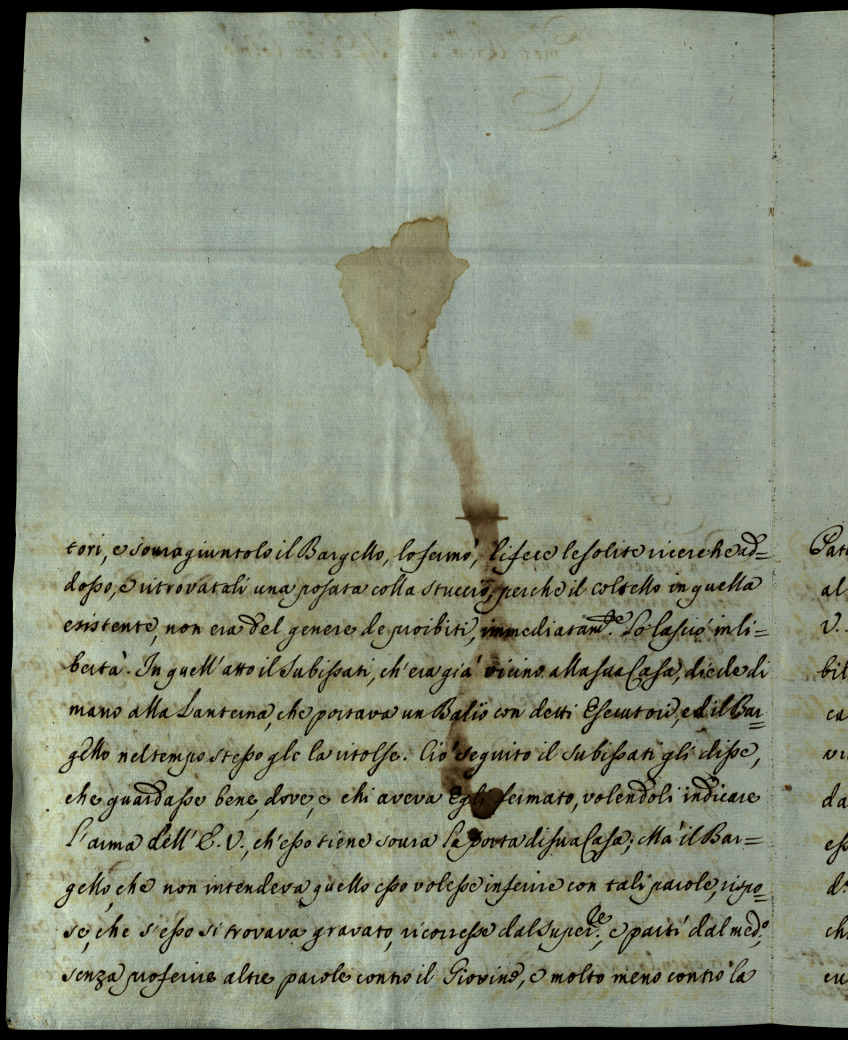 tori, e souragiuntolo il Bargello, lo fermò, li fece le solite ricerche ad=
dosso, e ritrovatali una posata colla stuccio, perche il coltello in quella
esistente, non era del genere de proibiti, immediatam.te Lo lasciò in li=
bertà. In quell'atto il Subissati, ch'era già vicino alla sua Casa, diede di
mano alla Lanterna, che portava un Balio con detti Esecutori, ed il Bar=
gello nel tempo stesso glc la ritolse. Ciò seguito il Subissati gli disse,
che guardasse bene, dove, e chi aveva Egli fermato, volendoli indicare
l'arma dell'E. V., ch'esso tiene soura la porta di sua Casa; Mà il Bar=
gello, che non intendeva quello esso volesse inferire con tali parole, rispo=
se, che s'esso si trovava gravato, ricorresse dal Super.re, e partì dal med.o
senza proferire altre parole contro il Giovine, e molto meno contro la
Pat
al
V.
bil
ca
vi
da
ess
d
ch
cu